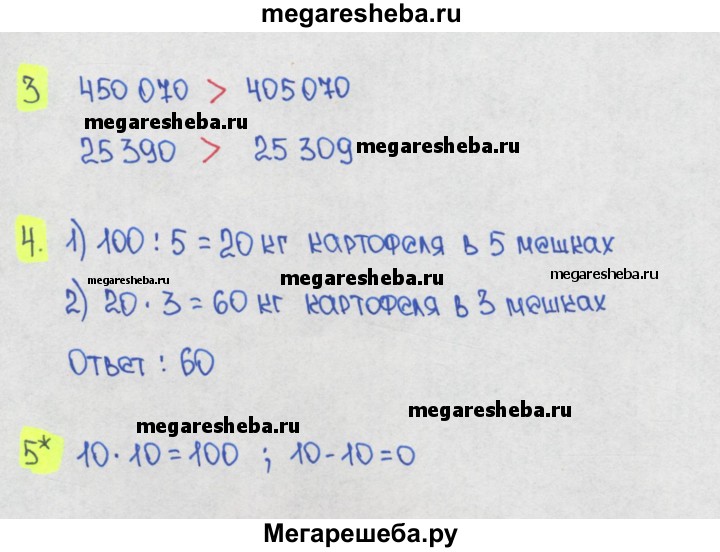 megaresheba.ru
3 450 070 > 405070
megaresheba.ru
25 390 > 25 309 megaresheba.ru
4. 1) 100 : 5 = 20 кг картофеля в 5 мешках
megaresheba.ru megaresheba.ru megaresheba.ru
2) 20 · 3 = 60 кг картофеля в 3 мешках
Ответ : 60
megaresheba.ru megaresheba.ru
5* 10 · 10 = 100 ; 10 - 10 = 0
Мегарешеба.ру